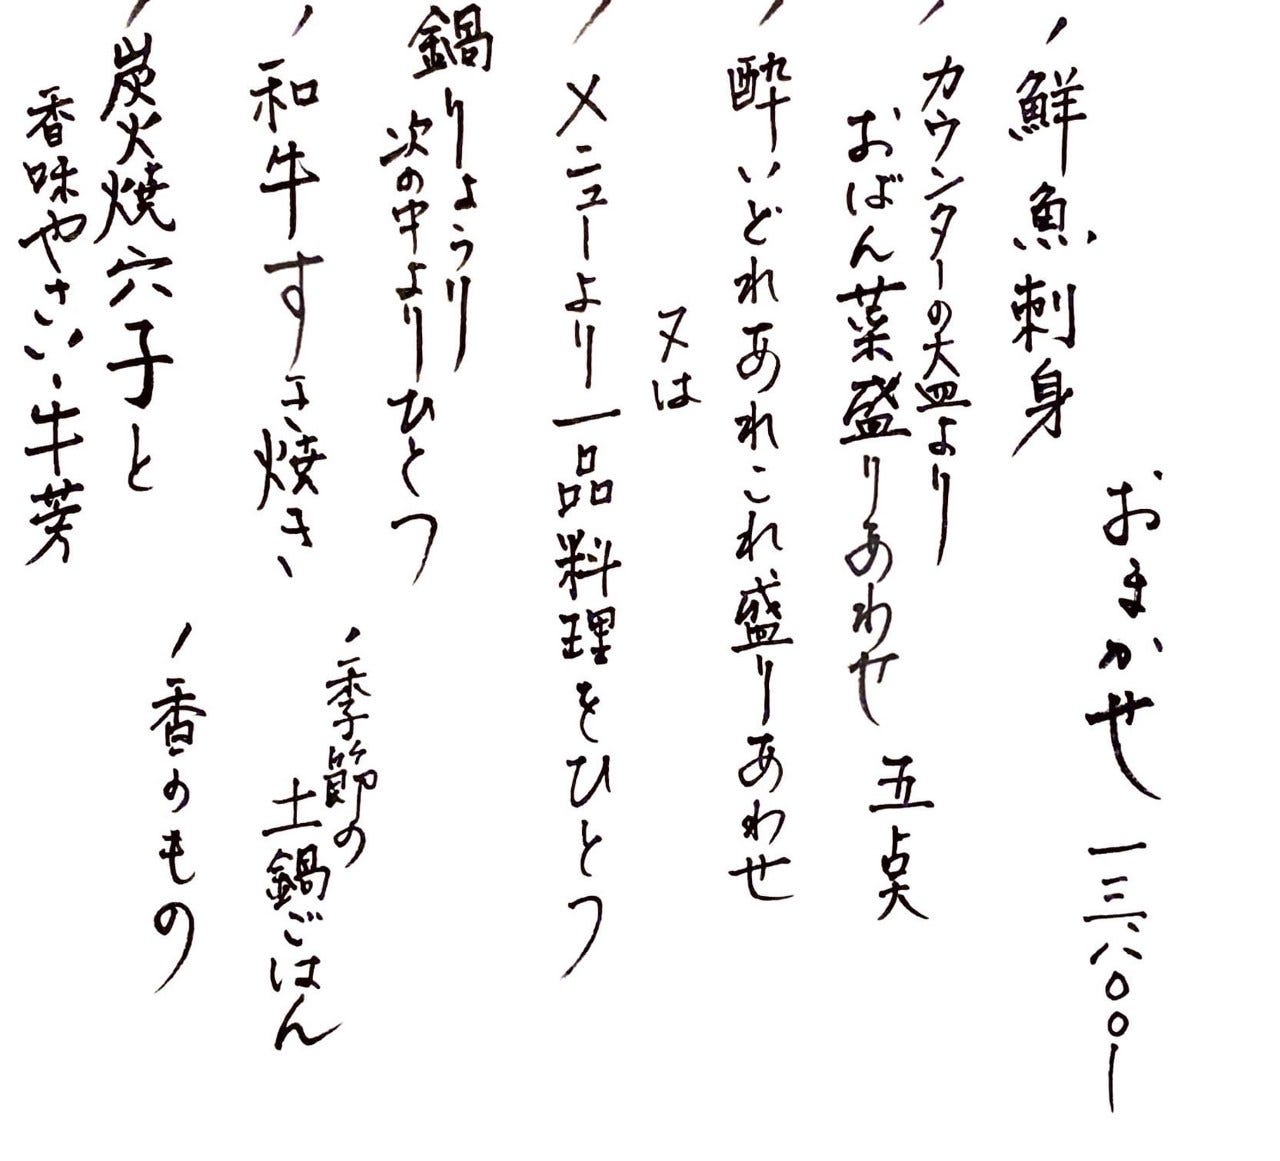 おまかせ 一三、八〇〇ー
鮮魚刺身
カウンターの大皿より
おばん菜盛りあわせ 五点
酔いどれあれこれ盛りあわせ
又は
メニューより一品料理をひとつ
鍋りょうり
次の中よりひとつ
和牛すき焼き、
炭火焼穴子と
香味やさい、牛蒡
季節の
土鍋ごはん
香のもの